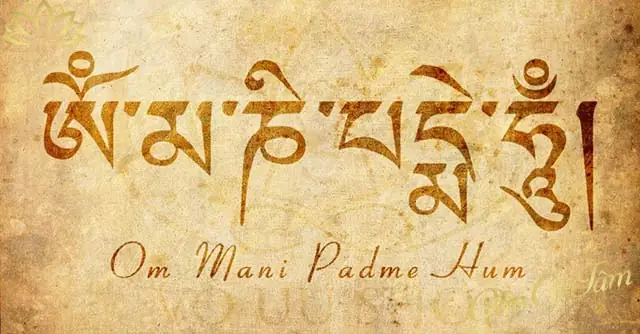 ཨོཾ་མ་ཎི་པདྨེ་ཧཱུྃ།
Om Mani Padme Hum
Tâm